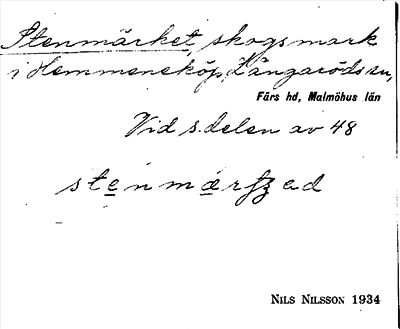 Stenmärket, skogsmark
i Hemmeneköp, Långaröds sn,
Färs hd, Malmöhus län
Vid s. delen av 48
NILS NILSSON 1934